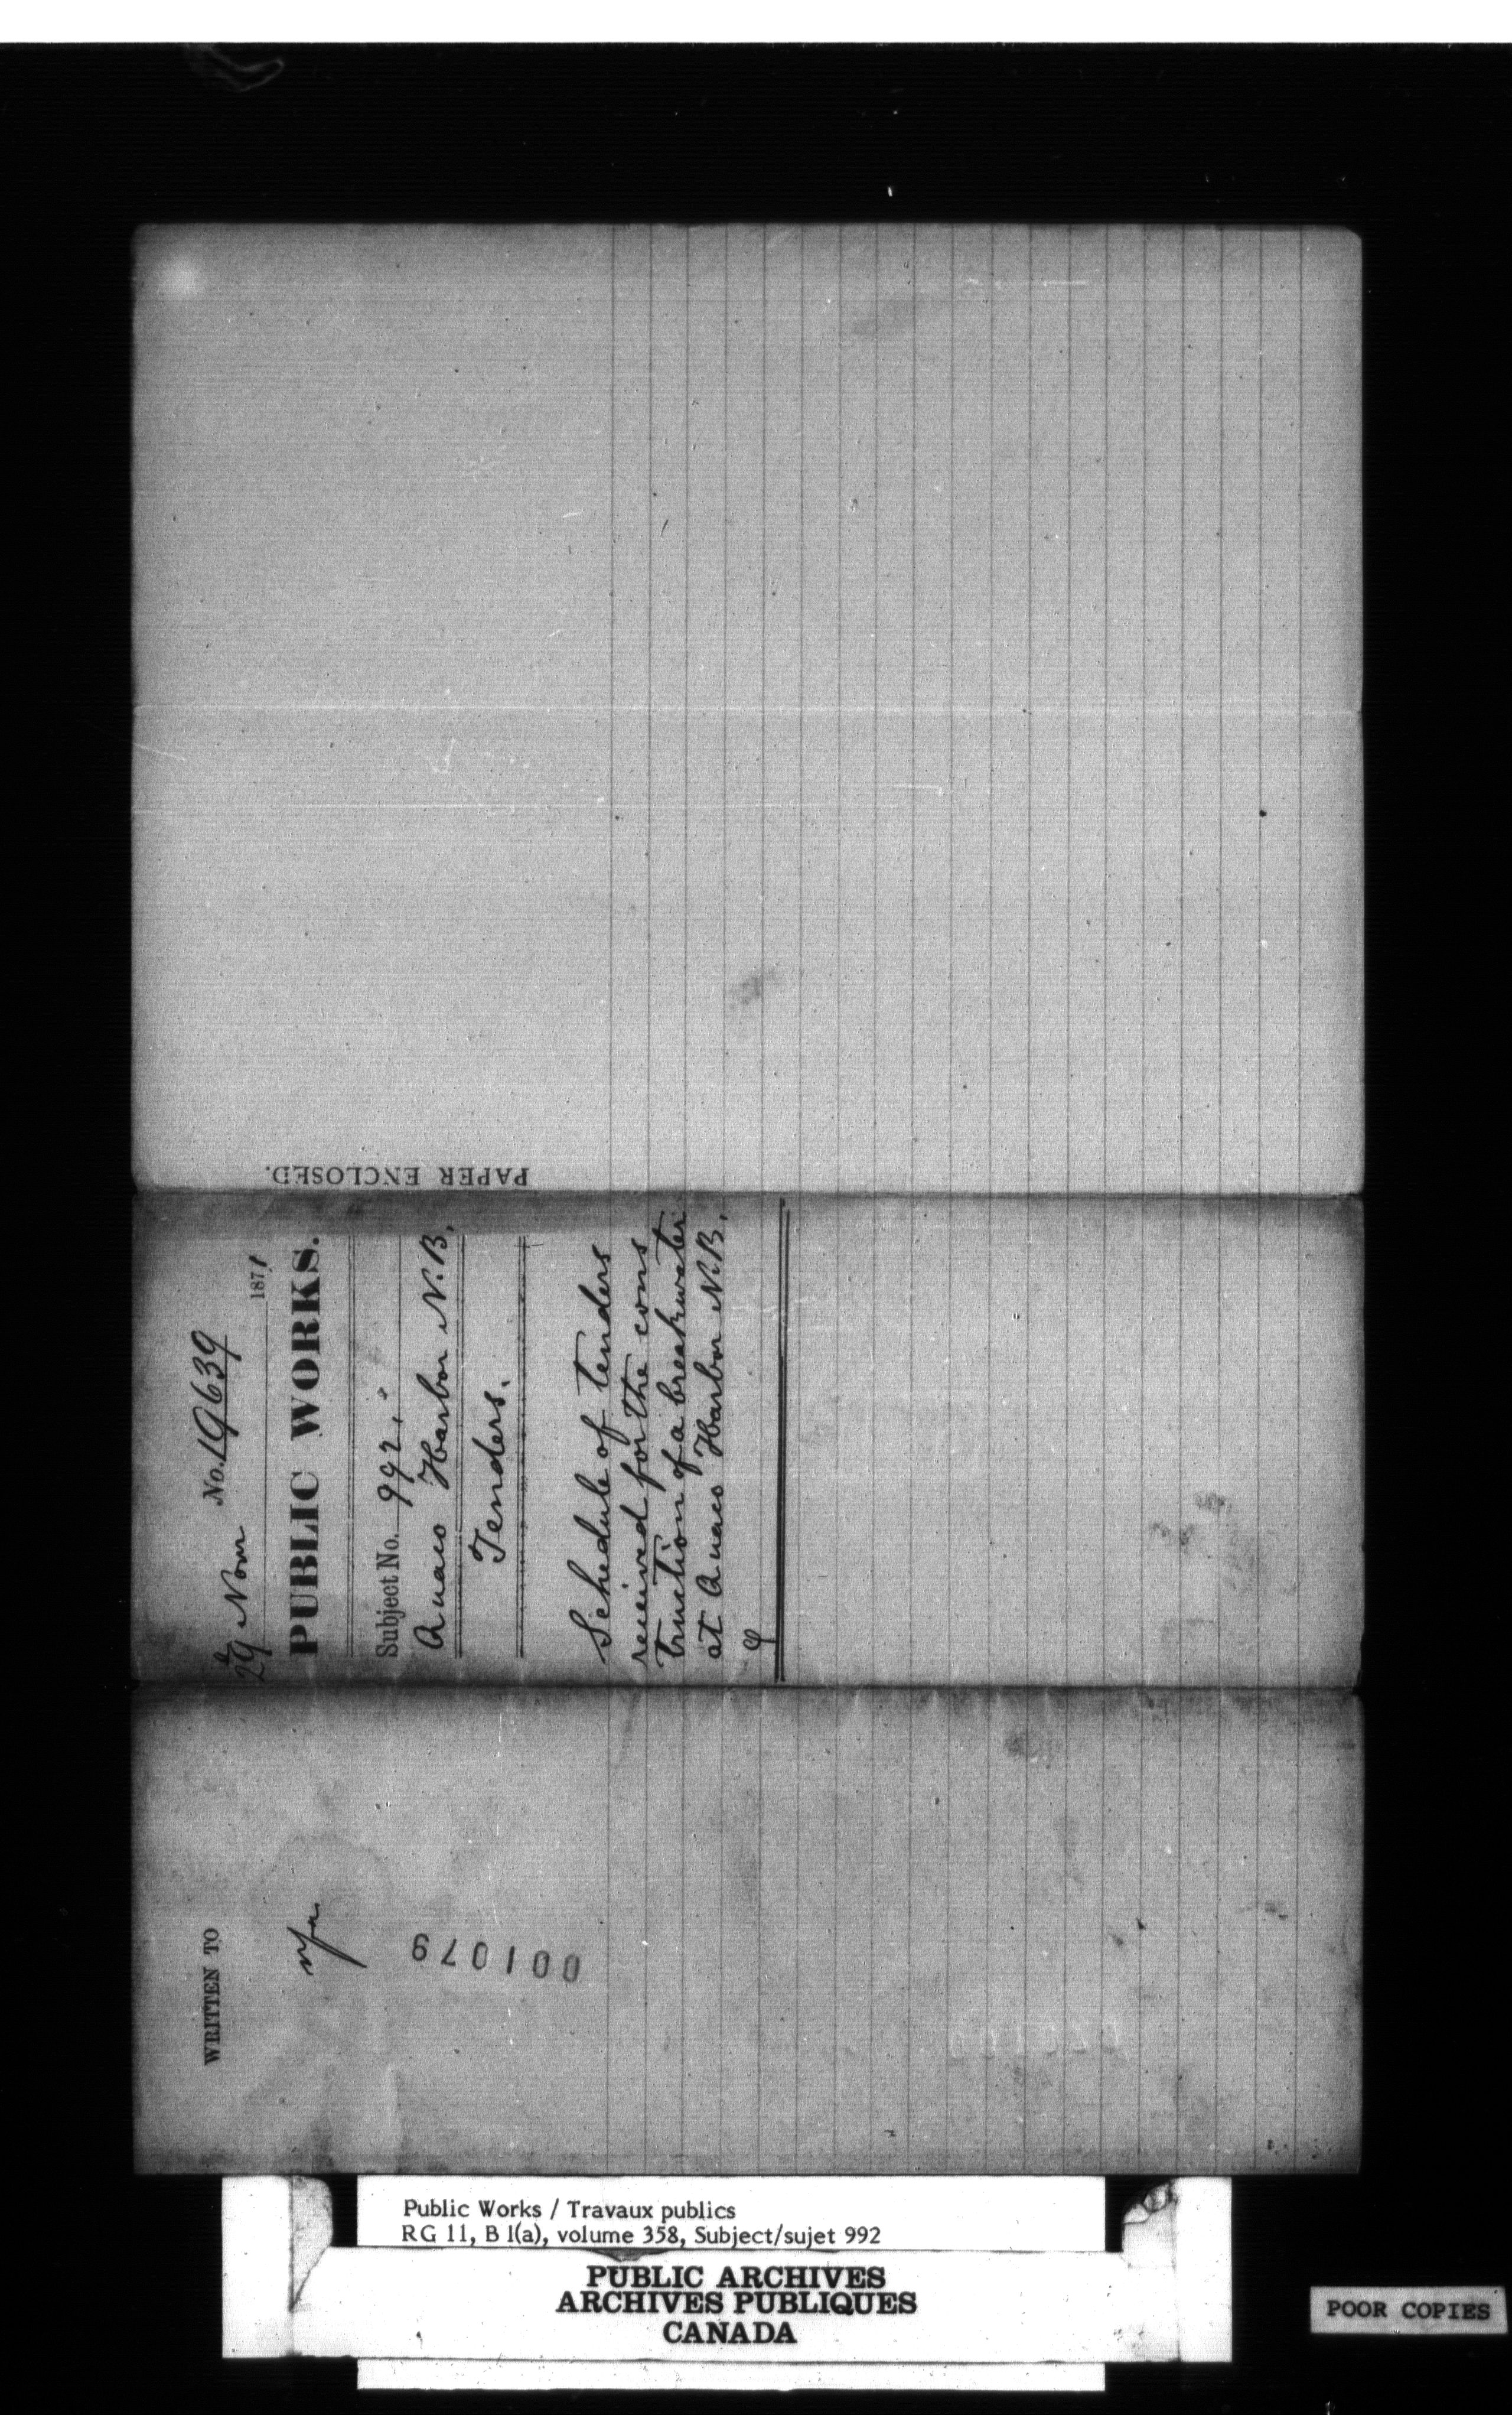 PAPER ENCLOSED.
No. 19639
29 Novr 1871
PUBLIC WORKS.
Subject No. 992.
Quaco Harbor N.B.
Tenders.
Schedule of tenders
received for the cons
truction of a breakwater
at Quaco Harbor N.B.
WRITTEN TO
001079
Public Works / Travaux publics
RG 11, B 1(a), volume 358, Subject/sujet 992
PUBLIC ARCHIVES
ARCHIVES PUBLIQUES
CANADA
POOR COPIES